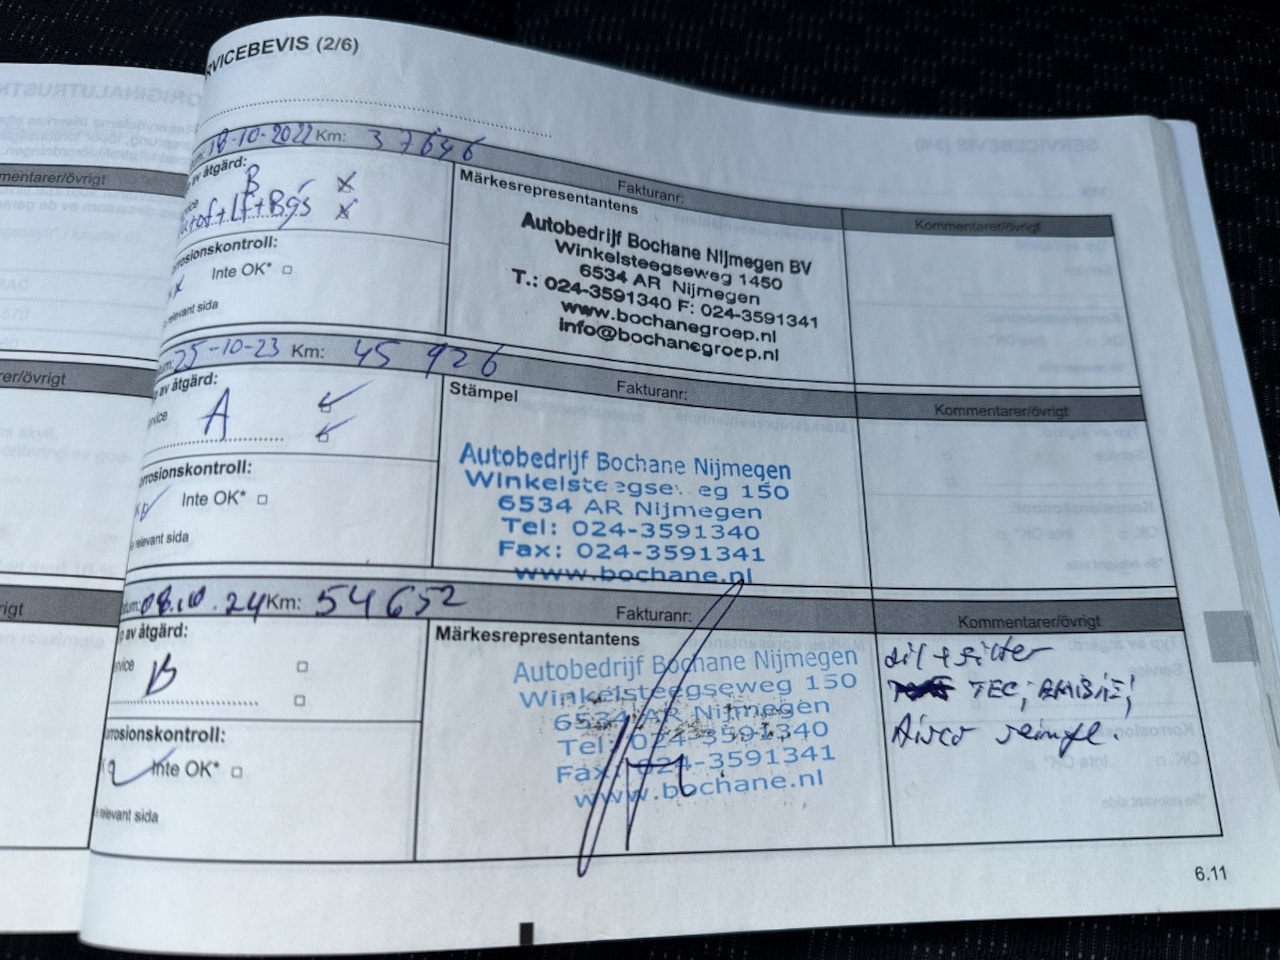 RVICEBEVIS (2/6)
18-10-2022 Km: 37646
Fakturanr:
Kommentarer/övrigt
av åtgärd:
B
Märkesrepresentantens
+of+Lf+Bgs
Autobedrijf Bochane Nijmegen BV
Winkelsteegseweg 1450
6534 AR Nijmegen
T.: 024-3591340 F: 024-3591341
www.bochanegroep.nl
info@bochanegroep.nl
rrosionskontroll:
Inte OK*
relevant sida
25-10-23 Km: 45 926
Fakturanr:
Kommentarer/övrigt
av åtgärd:
Stämpel
A
Autobedrijf Bochane Nijmegen
Winkelste egse eg 150
6534 AR Nijmegen
Tel: 024-3591340
Fax: 024-3591341
www.bochane.nl
rrosionskontroll:
Inte OK*
relevant sida
08.10.24 Km: 54652
Fakturanr:
Kommentarer/övrigt
av åtgärd:
Märkesrepresentantens
B
Autobedrijf Bochane Nijmegen
Winkelsteegseweg 150
6534 AR Nijmegen
Tel: 024-3591340
Fax: 024-3591341
www.bochane.nl
TEC,
Airco
rrosionskontroll:
Inte OK*
relevant sida
6.11
mentarer/övrigt
rer/övrigt
rigt